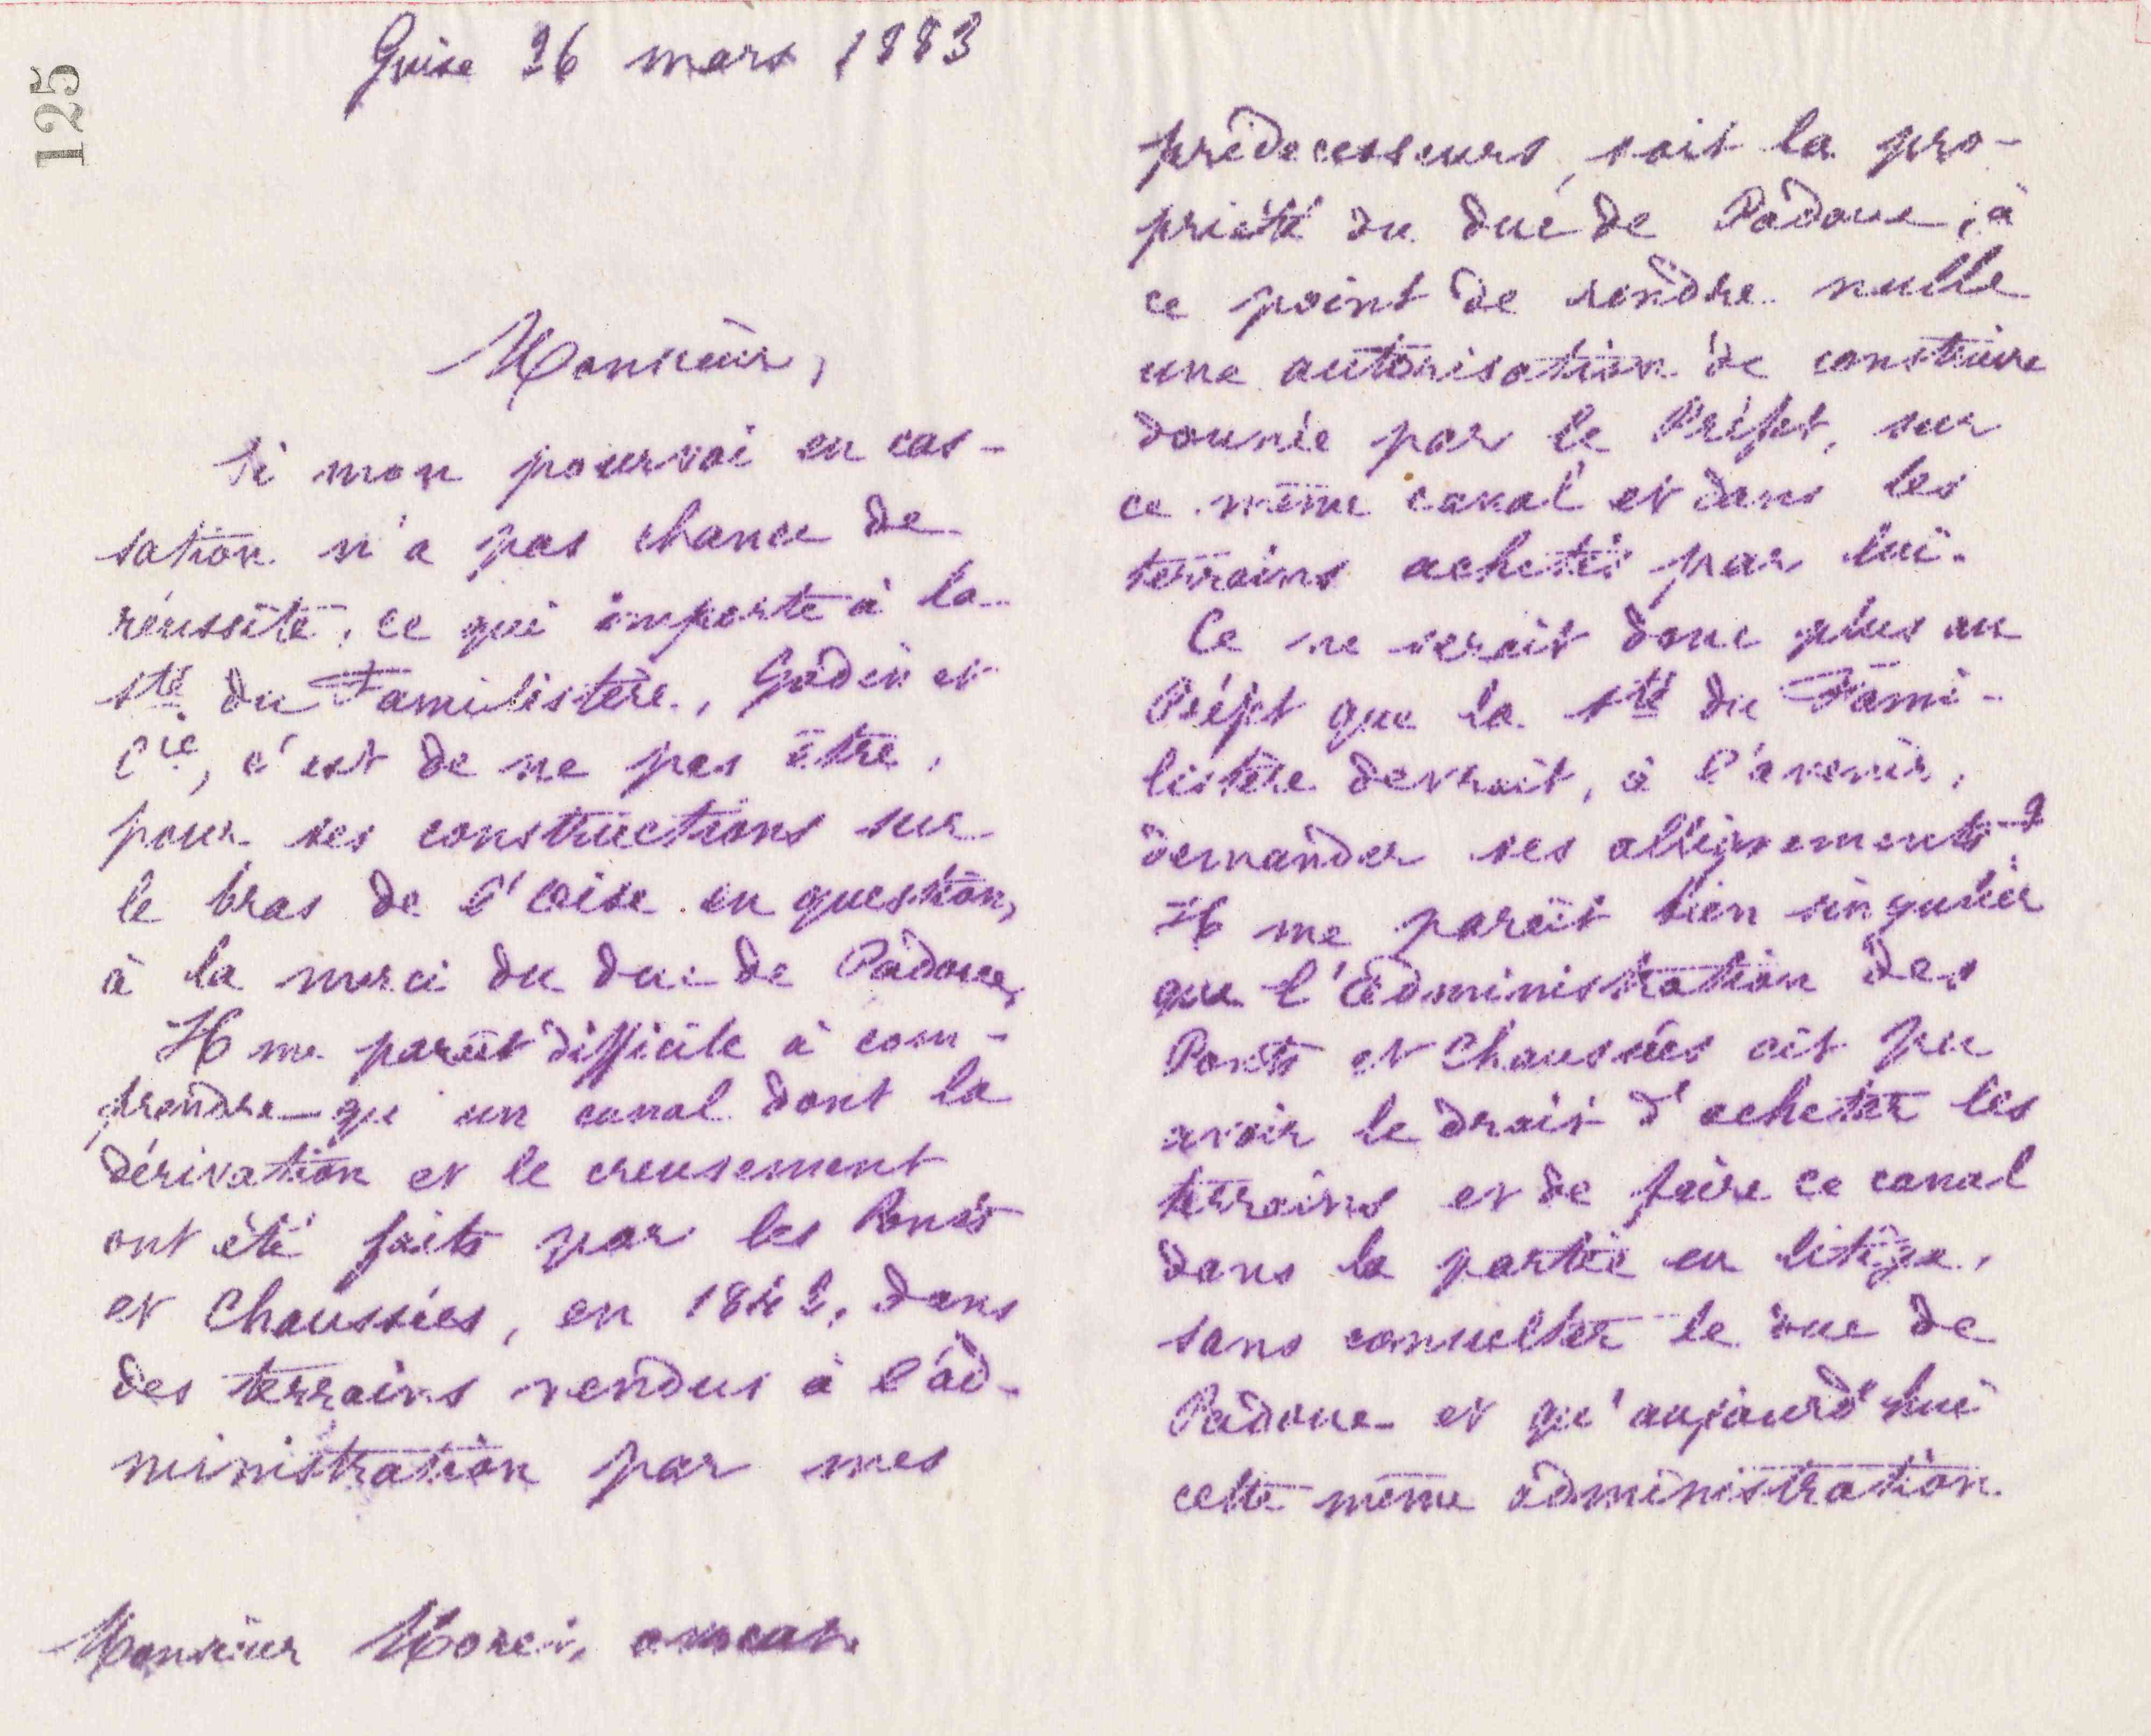 125
Guise 26 mars 1883
Monsieur,
Si mon pourvoi en cas-
sation n'a pas chance de
réussite, ce qui importe à la
Sté du Familistère, Godin et
Cie, c'est de ne pas être,
pour ses constructions sur
le bras de l'Oise en question,
à la merci du duc de Padoue,
Il me paraît difficile à com-
prendre qu'un canal dont la
dérivation et le creusement
ont été faits par les Ponts
et Chaussées, en 1842, dans
des terrains vendus à l'ad-
ministration par mes
Monsieur avocat.
prédécesseurs, soit la pro-
priété du duc de Padoue, à
ce point de rendre nulle
une autorisation de construire
donnée par le Préfet, sur
ce même canal et dans les
terrains achetés par lui.
Ce ne serait donc plus au
Préfet que la Sté du Fami-
listère devrait, à l'avenir,
demander ses allignements ?
Il me paraît bien singulier
que l'administration des
Ponts et Chaussées ait pu
avoir le droit d'acheter les
terrains et de faire ce canal
dans la partie en litige,
sans consulter le duc de
Padoue et qu'aujourd'hui
cette même administration